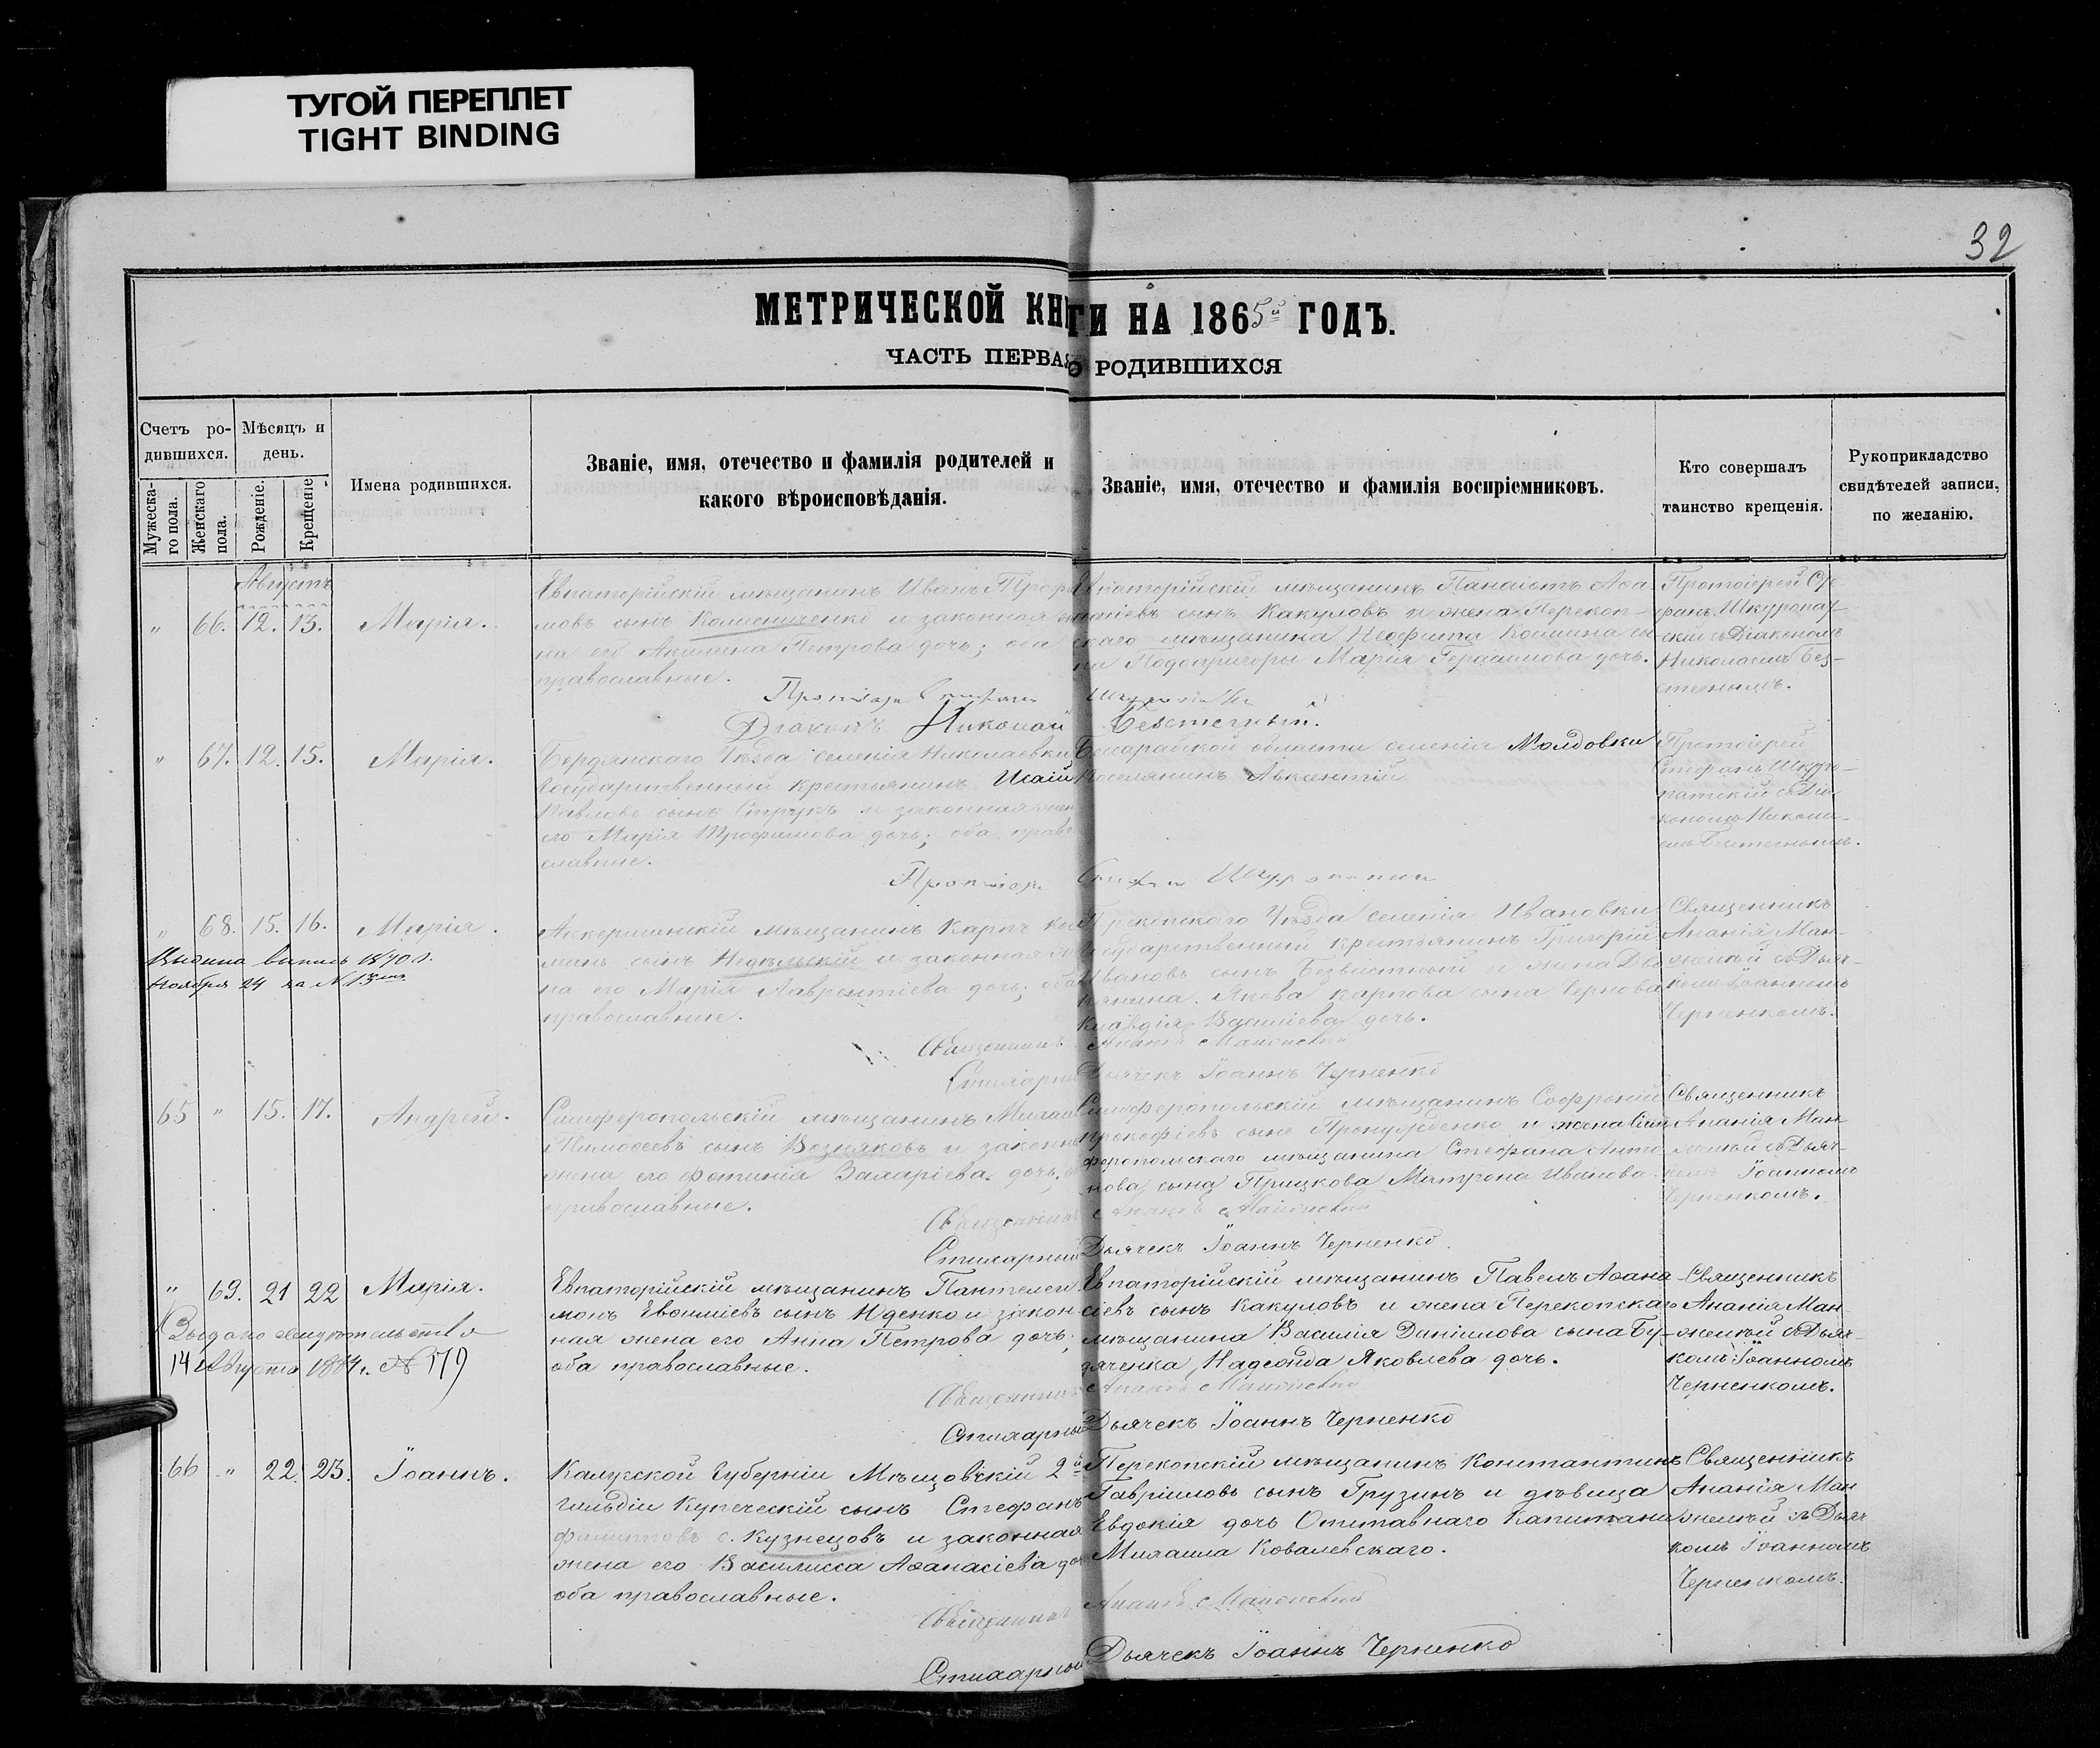 ТУГОЙ ПЕРЕПЛЕТ
TIGHT BINDING
32
МЕТРИЧЕСКОЙ КНИГИ НА 1865й ГОДЪ.
ЧАСТЬ ПЕРВАЯ О РОДИВШИХСЯ
Счетъ ро-
дившихся.
Мужеска-
го пола.
Женскаго
пола.
Мѣсяцъ и
день.
Рожденіе.
Крещеніе
Имена родившихся.
Званіе, имя, отечество и фамилія родителей и
какого вѣроисповѣданія.
Званіе, имя, отечество и фамилія воспріемниковъ.
Кто совершалъ
таинство крещенія.
Рукоприкладство
свидѣтелей записи,
по желанію.
Августъ
" 66. 12. 13. Марія.
Евпаторійскій мѣщанинъ Иванъ
мовъ сынъ Колисниченко и законная
на его Акилина Петрова дочь; оба
православные.
Евпаторійскій мѣщанинъ Панаіотъ Аѳа
сынъ Какуловъ и жена Перекоп-
скаго мѣщанина Неофита
на Подопригоры Марія Герасимова дочь.
Протоіерей Сте
фанъ Шкуропат
скій съ Діакономъ
Николаемъ Без-
Діаконъ Николай
" 67. 12. 15. Марія.
Бердянскаго Уѣзда селенія Николаевки
Государственный крестьянинъ Исаій
Павловъ сынъ Струкъ и законная жен
его Марія Трофимова дочь; оба право
славные.
Бессарабской области селенія Молдовки
поселянинъ Авксентій
Протоіерей
Стефанъ Шкуро-
патскій съ Діа
кономъ Никола-
" 68. 15. 16. Марія.
Выдана выпись 1870 г.
Ноября 24 за №
Аккерманскій мѣщанинъ Карпъ
минъ сынъ Недѣльскій и законная
на его Марія Лаврентіева дочь; оба
православные.
Перекопскаго Уѣзда селенія Ивановки
Государственный крестьянинъ Григорій
Ивановъ сынъ Безвѣстный и жена Дво
рянина Якова Карпова сына Чернова
Клавдія Василіева дочь.
Священникъ
Ананія Ман-
желѣй съ Дьяч-
комъ Іоанномъ
Черненкомъ.
Священникъ
Стихарный Дьячекъ Іоаннъ Черненко
65 " 15. 17. Андрей.
Симферопольскій мѣщанинъ Михаи
Тимоѳеевъ сынъ Возняковъ и законна
жена его Фотинія Захаріева дочь;
православные.
Симферопольскій мѣщанинъ Софроній
Прокофіевъ сынъ и жена Сим
феропольскаго мѣщанина Стефана Анто
нова сына Прицкова Матрона Иванова
Священникъ
Ананія Ман
желѣй съ Дьяч-
комъ Іоанномъ
Черненкомъ.
Священникъ
Стихарный Дьячекъ Іоаннъ Черненко.
" 69. 21 22 Марія.
Выдано свидѣтельство
14 Августа г. № 179
Евпаторійскій мѣщанинъ Пантелей
монъ Евѳиміевъ сынъ Иденко и закон-
ная жена его Анна Петрова дочь;
оба православные.
Евпаторійскій мѣщанинъ Павелъ Аѳана
сіевъ сынъ Какуловъ и жена Перекопскаго
мѣщанина Василія Даніилова сына Бу-
дяченка Надежда Яковлева дочь.
Священникъ
Ананія Ман-
желѣй съ Дьяч-
комъ Іоанномъ
Черненкомъ.
Священникъ
Стихарный Дьячекъ Іоаннъ Черненко
66 " 22. 23. Іоаннъ.
Калужской Губерніи Мѣщовскій 2й
гильдіи Купеческій сынъ Стефанъ
Филипповъ с. Кузнецовъ и законная
жена его Василисса Аѳанасіева до
оба православные.
Перекопскій мѣщанинъ Константинъ
Гавріиловъ сынъ Грузинъ и дѣвица
Евдокія дочь Отставнаго Капитана
Михаила Ковалевскаго.
Священникъ
Ананія Ман
желѣй съ Дьяч
комъ Іоанномъ
Черненкомъ.
Священникъ
Стихарный Дьячекъ Іоаннъ Черненко